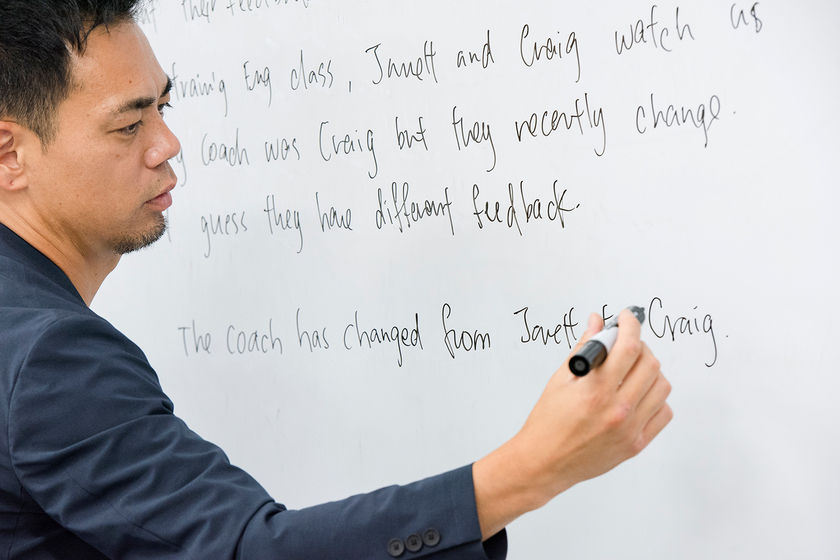 their feedback
training Eng class, Janett and Craig watch us
coach was Craig but they recently change.
guess they have different feedback.
The coach has changed from Janett Craig.